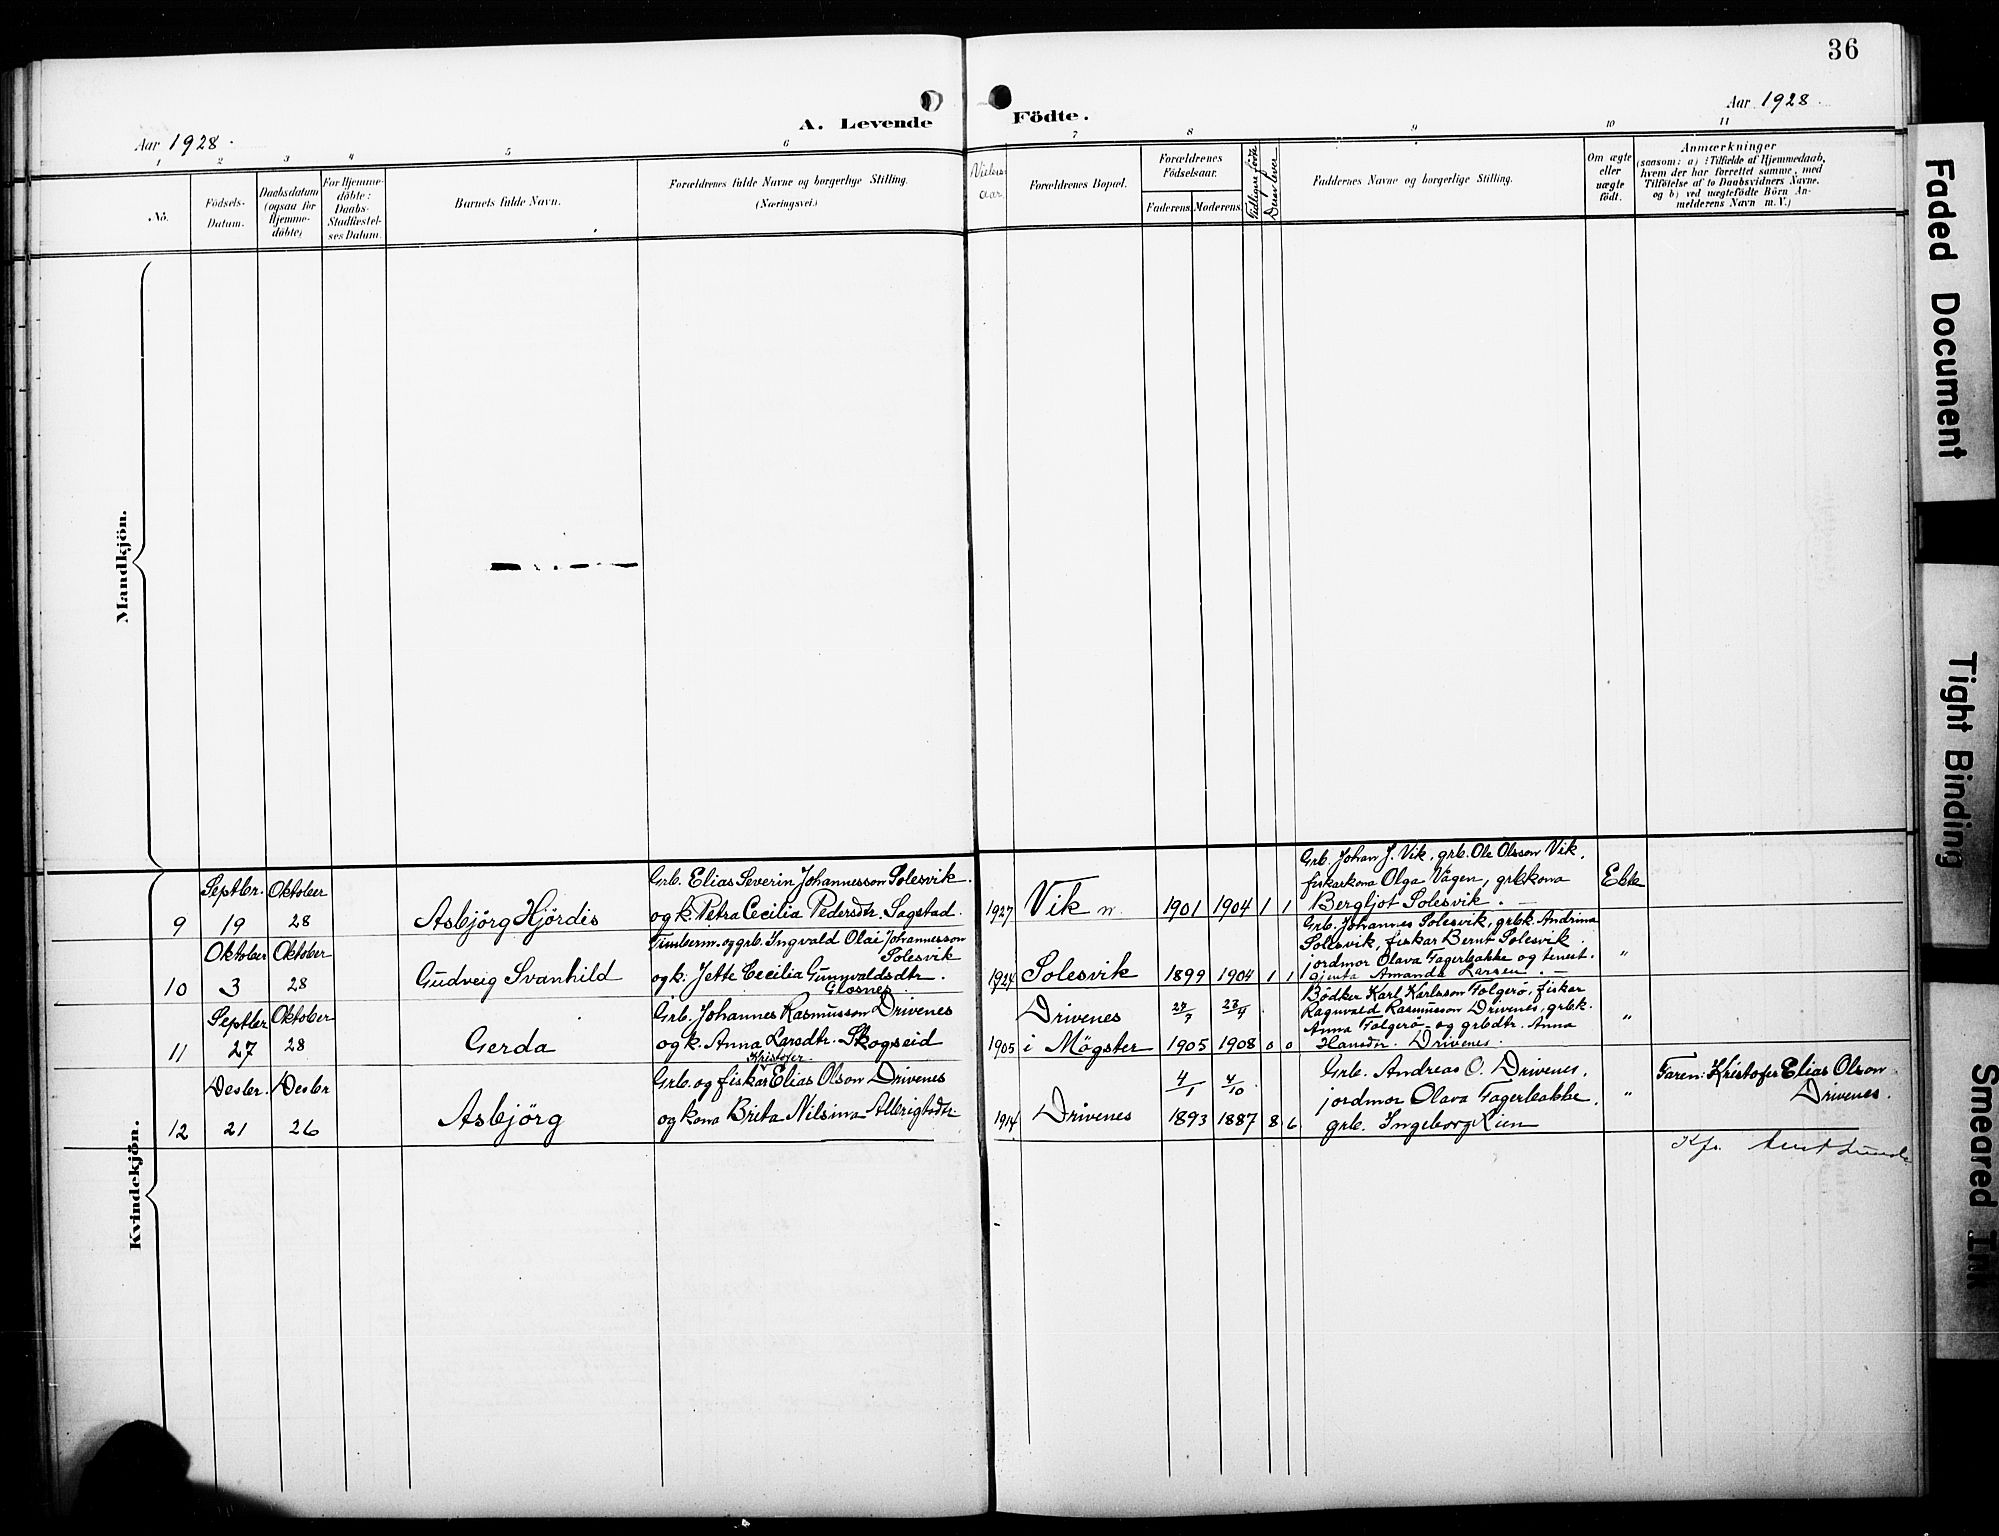 36
Aar 1928.
A. Levende Födte.
Aar 1928.
1 2 3 4 5 6 7 8 9 10 11
No.
Födsels-Datum.
Daabsdatum (ogsaa for Hjemme-döbte)
For Hjemme-döbte: Daabs-Stadfæstel-ses Datum.
Barnets fulde Navn.
Forældrenes fulde Navne og borgerlige Stilling. (Næringsvei.)
Vielses aar.
Forældrenes Bopæl.
Forældrenes Födselsaar.
Faderens. Moderens.
Tidligere födte
Derav lever
Faddernes Navne og borgerlige Stilling.
Om ægte eller uægte födt.
Anmærkninger
(saasom: a) i Tilfælde af Hjemmedaab,
hvem der har forrettet samme, med
Tilföielse af to Daabsvidners Navne.
og b) ved uægtefödte Börn An-
melderens Navn m. V.)
Mandkjön.
Kvindekjön.
9
Septbr. 19
Oktober 28
Asbjörg Hjördis
Grb. Elias Severin Johannesson Solesvik
og k. Petra Cecilia Pedersdtr. Sagstad.
1927
Vik n.
1901 1904 1 1
Grb. Johan J. Vik, grb. Ole Olsson Vik,
fiskarkona Olga Vågen, grbkona
Bergljot Solesvik. —
Ekte
10
Oktober 3
Oktober 28
Gudveig Svanhild
Timberm. og grb. Ingvald Olai Johannesson
Solesvik
og k. Jette Cecilia Gunnvaldsdtr.
Glosnes.
1924
Solesvik
1899 1904 1 1
Grb. Johannes Solesvik, grbk. Andrina
Solesvik, fiskar Bernt Solesvik.
jordmor Olava Fagerbakke og tenest-
gjenta Amanda Larsen. —
"
11
Septbr 27
Oktober 28
Gerda
Grb. Johannes Rasmusson Drivenes
og k. Anna Larsdtr. Skogseid
1905
Drivenes
i Mögster
27/7 1905 23/4 1908 0 0
Bödker Karl Karlsson Folgerö, fiskar
Ragnvald Rasmusson Drivenes, grbk.
Anna Folgerö og grbdtr. Anna
Hansdtr. Drivenes.
"
12
Desbr. 21
Desbr 26
Asbjörg
Kristofer
Grb. og fiskar Elias Olson Drivenes
og kona Brita Nilsina Albrigtsdtr
1914
Drivenes
4/1 1893 4/10 1887 8 6
Grb. Andreas O. Drivenes,
jordmor Olava Fagerbakke,
grb. Ingeborg Lien
"
Faren: Kristofer Elias Olson
Drivenes.
Kfr.
Faded Document
Tight Binding
Smeared Ink